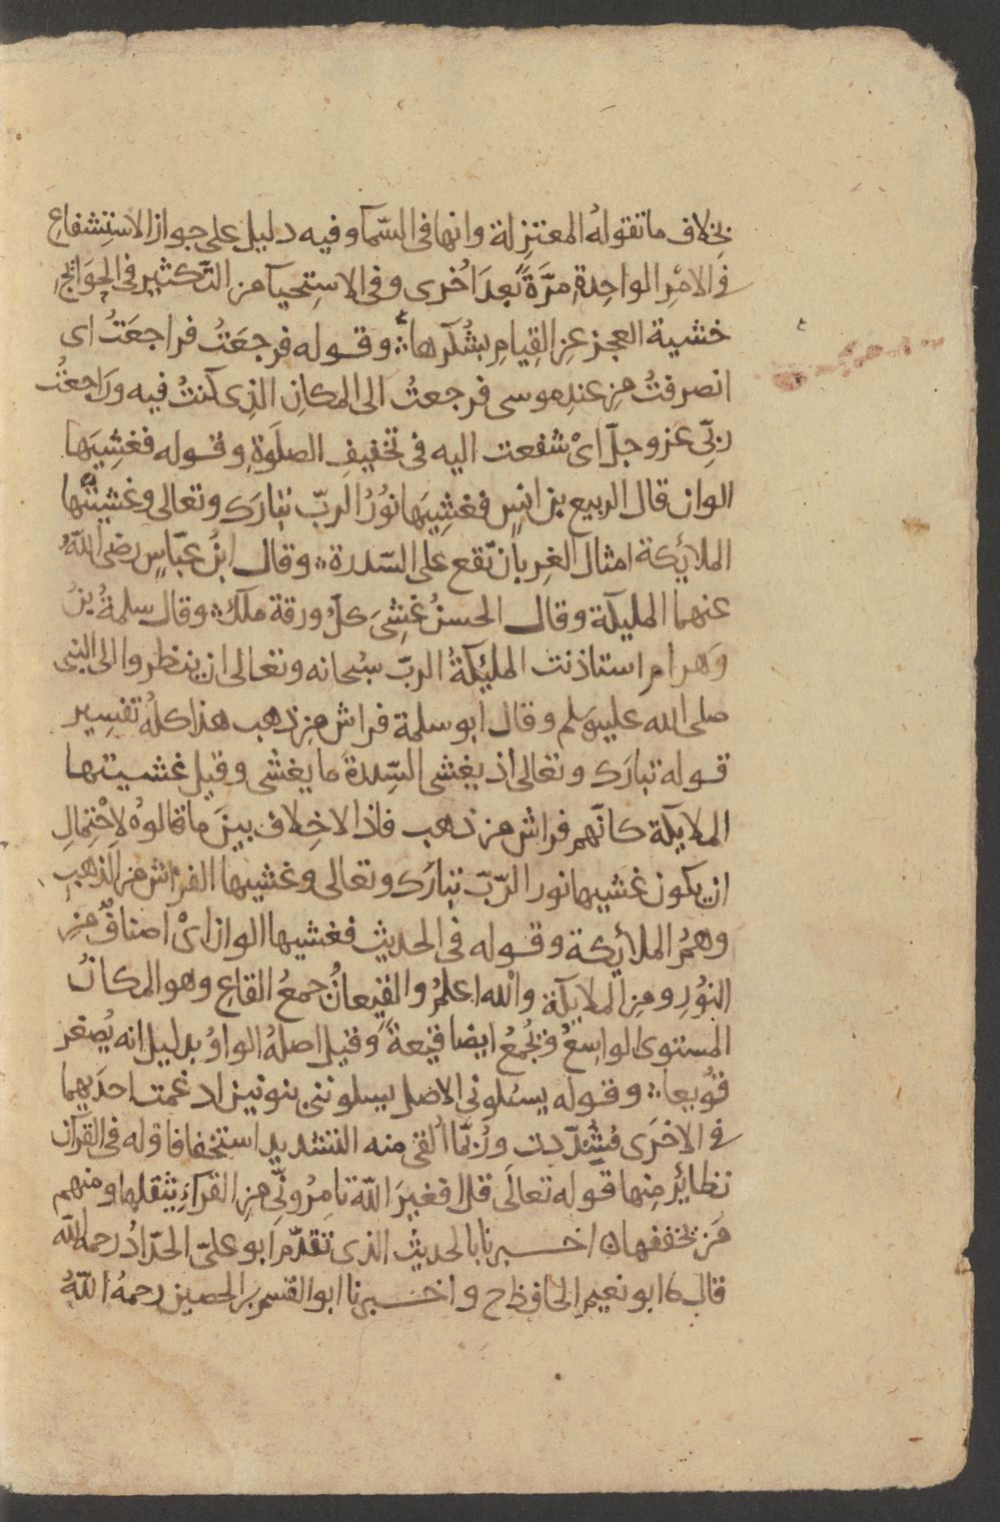 بخلاف ما تقولهُ المعتزِلة وانها في السّما وفيه دليل على جواز الاستِشفاعِ
في الامْرِ الواحِدةِ مرَّةً بعدَ اخرى وفي الاستِحيآ من التَّكثيرِ في الحَوَائج
خشية العجز عنِ القِيامِ بشُكرها ۞ وقوله فرجعَتُ فراجعَتُ اى
انصرفتُ مِن عندِ موسى فرجعتُ الى المكانِ الذِى كنتُ فيه ورَاجعتُ
ربّى عز وجلّ اىْ شفعت اليه في تخفيفِ الصلَوة وقوله فغشِيَها
الوان قال الربيع بن انسٍ فغشِيَها نوُرُ الربّ تبارَك وتعالى وغشيتْها
الملائِكة امثال الغِربان تقع على السّدرة ۞ وقال ابنُ عبّاسٍ رضى اللّهُ
عنهما المليكة وقال الحسنُ غشِىَ كلّ ورقة ملَك ۞ وقال سلمةُ بنُ
وَهرام استاذنت المليِكةُ الربّ سبُحانه وتعالى ان ينظروا الى النبى
صلى الله عليه وسلم وقال ابو سلمة فراش مِن ذهب هذا كلهُ تفسِير
قوله تبارَك وتعالى اذ يغشى السِّدرةَ ما يغشى وقيل غشيتها
الملايكة كانّهم فراش من ذهب فاذا لاخِلاف بينَ ما قالوهُ لاِحْتِمالِ
ان يكون غشيها نور الرّبّ تبارَك وتعالى وغشيها الفراش من الذهبِ
وهمُ الملأيكة وقوله في الحديث فغشيها الوان اىْ اصنافٌ مِن
النوُرِ ومِن الملايكة والله اعلمُ والقيعانُ جمعُ القاعِ وهو المكانُ
المستوى الواسِعُ وَيُجمعُ ايضا قيعةً وقيل اصلهُ الواوُ بدليل انه يُصغر
قوُيعا ۞ وقوله يسئلونى الاصل يسلوننى بنونين ادغمت احدَيهما
في الاخرَى فشُدّدت ورُبّما اُلقى منه التشديد استخفافا وله في القرآن
نظائِر مِنها قوله تعالَى قل افغيرَ اللّه تامرُونِّى مِن القرآءِ يثقلها ومنهم
مَن يخففها ۞ اخبرنا بالحديث الذى تقدّم ابو علىّ الحدّادُ رحمه الله
قال ثا ابو نعيمِ الحافِظ ح واخبرنا ابو القسم بن الحصين رحمهُ اللّهُ